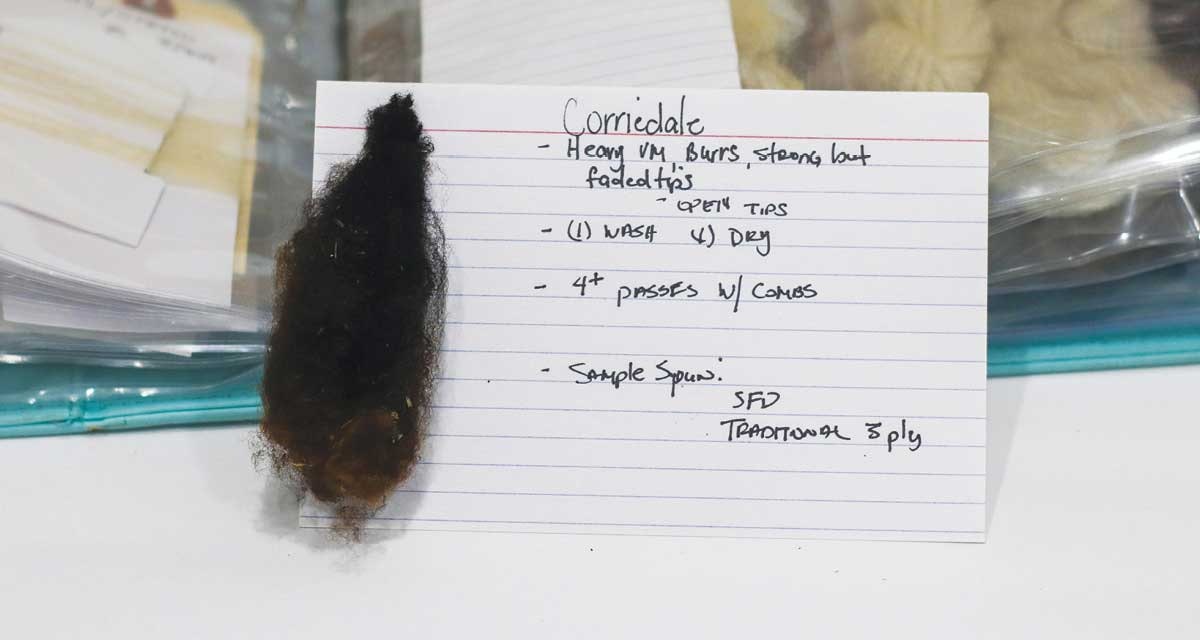 Corriedale
- Heavy VM, Burrs, strong but
faded tips
- OPEN TIPS
- (1) WASH (1) DRY
- 4+ PASSES W/ COMBS
- SAMPLE SPUN:
SFD
TRADITIONAL 3 ply